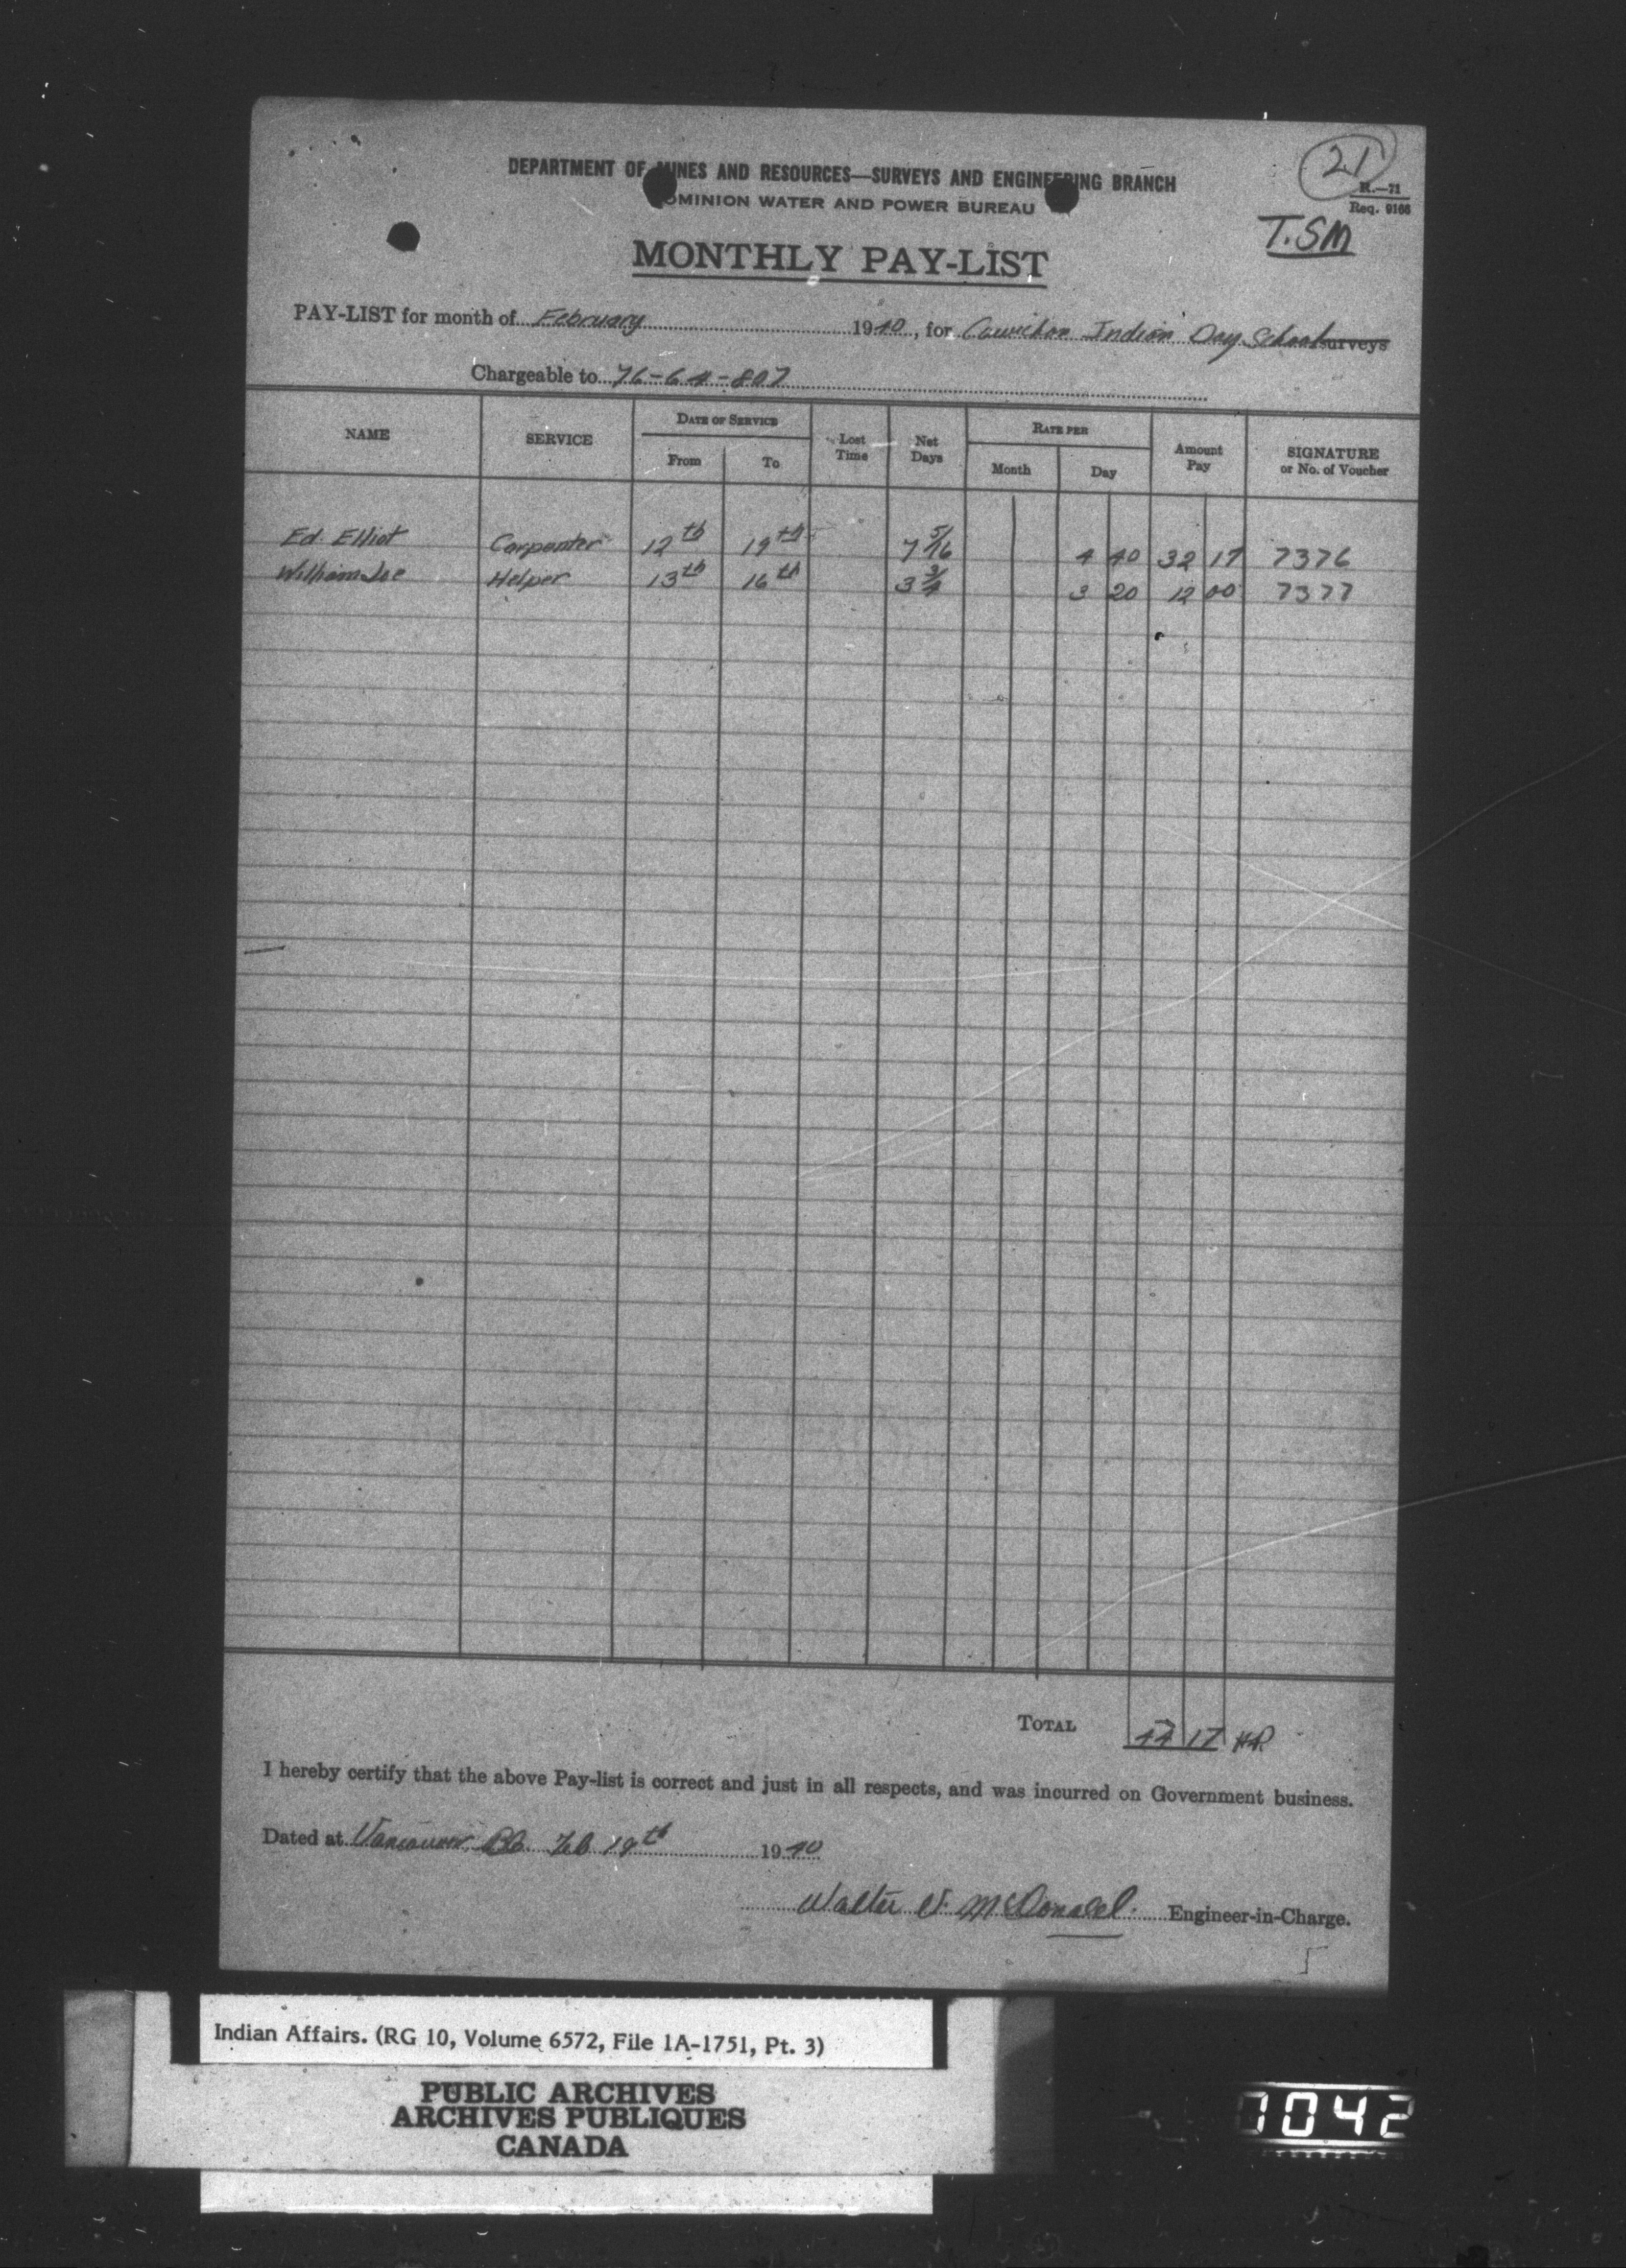 21
DEPARTMENT OF MINES AND RESOURCES—SURVEYS AND ENGINEERING BRANCH
R.—71
DOMINION WATER AND POWER BUREAU
Req. 9166
T.SM
MONTHLY PAY-LIST
PAY-LIST for month of February 1940, for Cowichan Indian Day School surveys
Chargeable to 76-64-807
NAME SERVICE DATE OF SERVICE From To Lost Time Net Days RATE PER Month Day Amount Pay SIGNATURE or No. of Voucher
Ed. Elliot Carpenter 12th 19th 7 5/16 4 40 32 17 7376
William Joe Helper 13th 16th 3 3/4 3 20 12 00 7377
TOTAL 44 17
I hereby certify that the above Pay-list is correct and just in all respects, and was incurred on Government business.
Dated at Vancouver, BC. Feb 19th 1940
Walter V. McDonald. Engineer-in-Charge.
Indian Affairs. (RG 10, Volume 6572, File 1A-1751, Pt. 3)
PUBLIC ARCHIVES
ARCHIVES PUBLIQUES
CANADA
1042